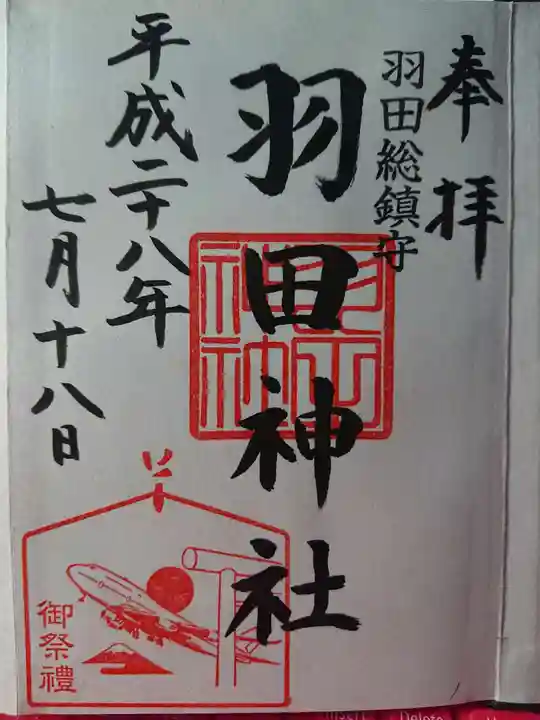 奉拝
羽田総鎮守
羽田神社
平成二十八年
七月十八日
御祭禮
Insert
Delete